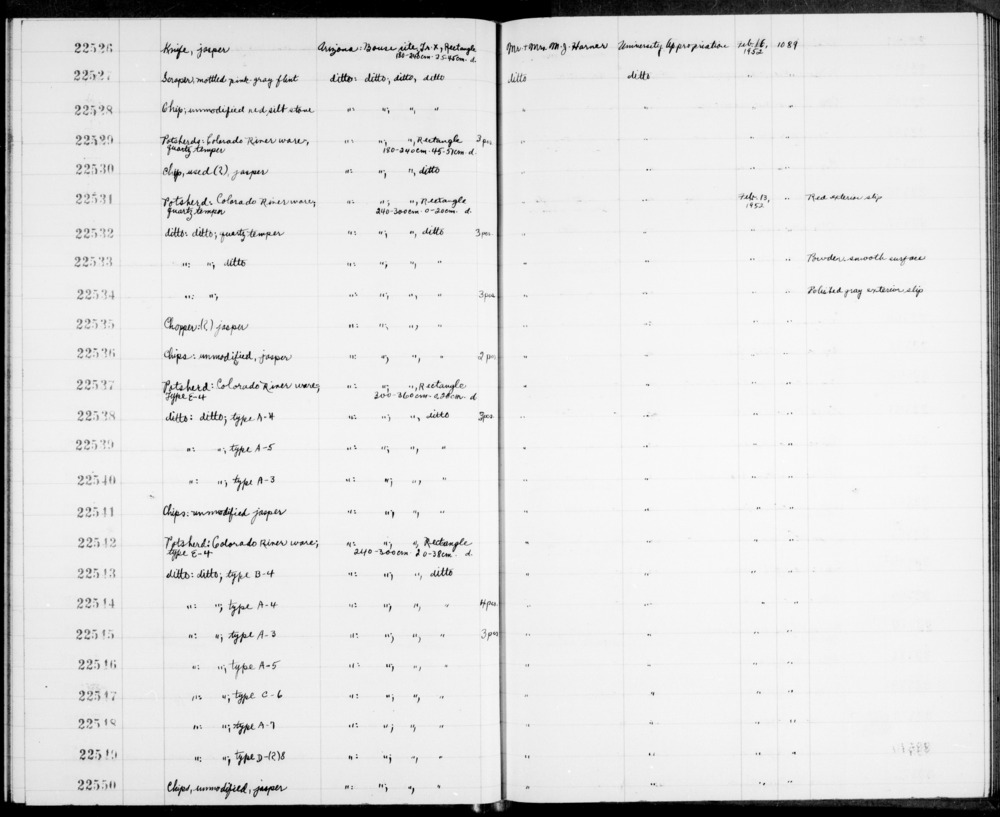 22526 Knife, jasper Arizona: Bouse site, Tr. X, Rectangle Mr. + Mrs. M.J. Harner University Appropriation Feb. 16, 1089
180-240cm. 25-45cm. d. 1952
22527 Scraper, mottled pink gray flint ditto: ditto, ditto, ditto ditto ditto " "
22528 Chip, unmodified red, silt stone ": "; ", " " " " "
22529 Potsherds: Colorado River ware, ": "; ", Rectangle 3 pcs " " " "
quartz temper 180-240cm. 45-51cm. d.
22530 Chip, used (?), jasper ": "; ", ditto " " " "
22531 Potsherd: Colorado River ware, ": "; ", Rectangle " " Feb. 13, " Red exterior slip
quartz temper 240-300cm. 0-20cm. d. 1952
22532 ditto: ditto; quartz temper ": "; ", ditto 3 pcs. " " " "
22533 ": "; ditto ": "; ", " " " " " smooth surface
22534 ": "; ": "; ", " 3 pcs " " " " Polished gray exterior slip
22535 Chopper: (?) jasper ": "; ", " " " " "
22536 Chips: unmodified, jasper ": "; ", " 2 pcs " " " "
22537 Potsherd: Colorado River ware; ": "; ", Rectangle " " " "
Type E-4 300-360cm. 0-20cm. d
22538 ditto: ditto; type A-4 ": "; ", ditto 3 pcs. " " " "
22539 ": "; type A-5 ": "; ", " " " " "
22540 ": "; type A-3 ": "; ", " " " " "
22541 Chips: unmodified jasper ": "; ", " " " " "
22542 Potsherd: Colorado River ware; ": "; ", Rectangle " " " "
type E-4 240-300cm. 20-38cm. d.
22543 ditto: ditto; type B-4 ": "; ", ditto " " " "
22544 ": "; type A-4 ": "; ", " 4 pcs " " " "
22545 ": "; type A-3 ": "; ", " 3 pcs " " " "
22546 ": "; type A-5 ": "; ", " " " " "
22547 ": "; type C-6 ": "; ", " " " " "
22548 ": "; type A-7 ": "; ", " " " " "
22549 ": "; type D-(?)8 ": "; ", " " " " "
22550 Chips, unmodified, jasper ": "; ", " " " " "